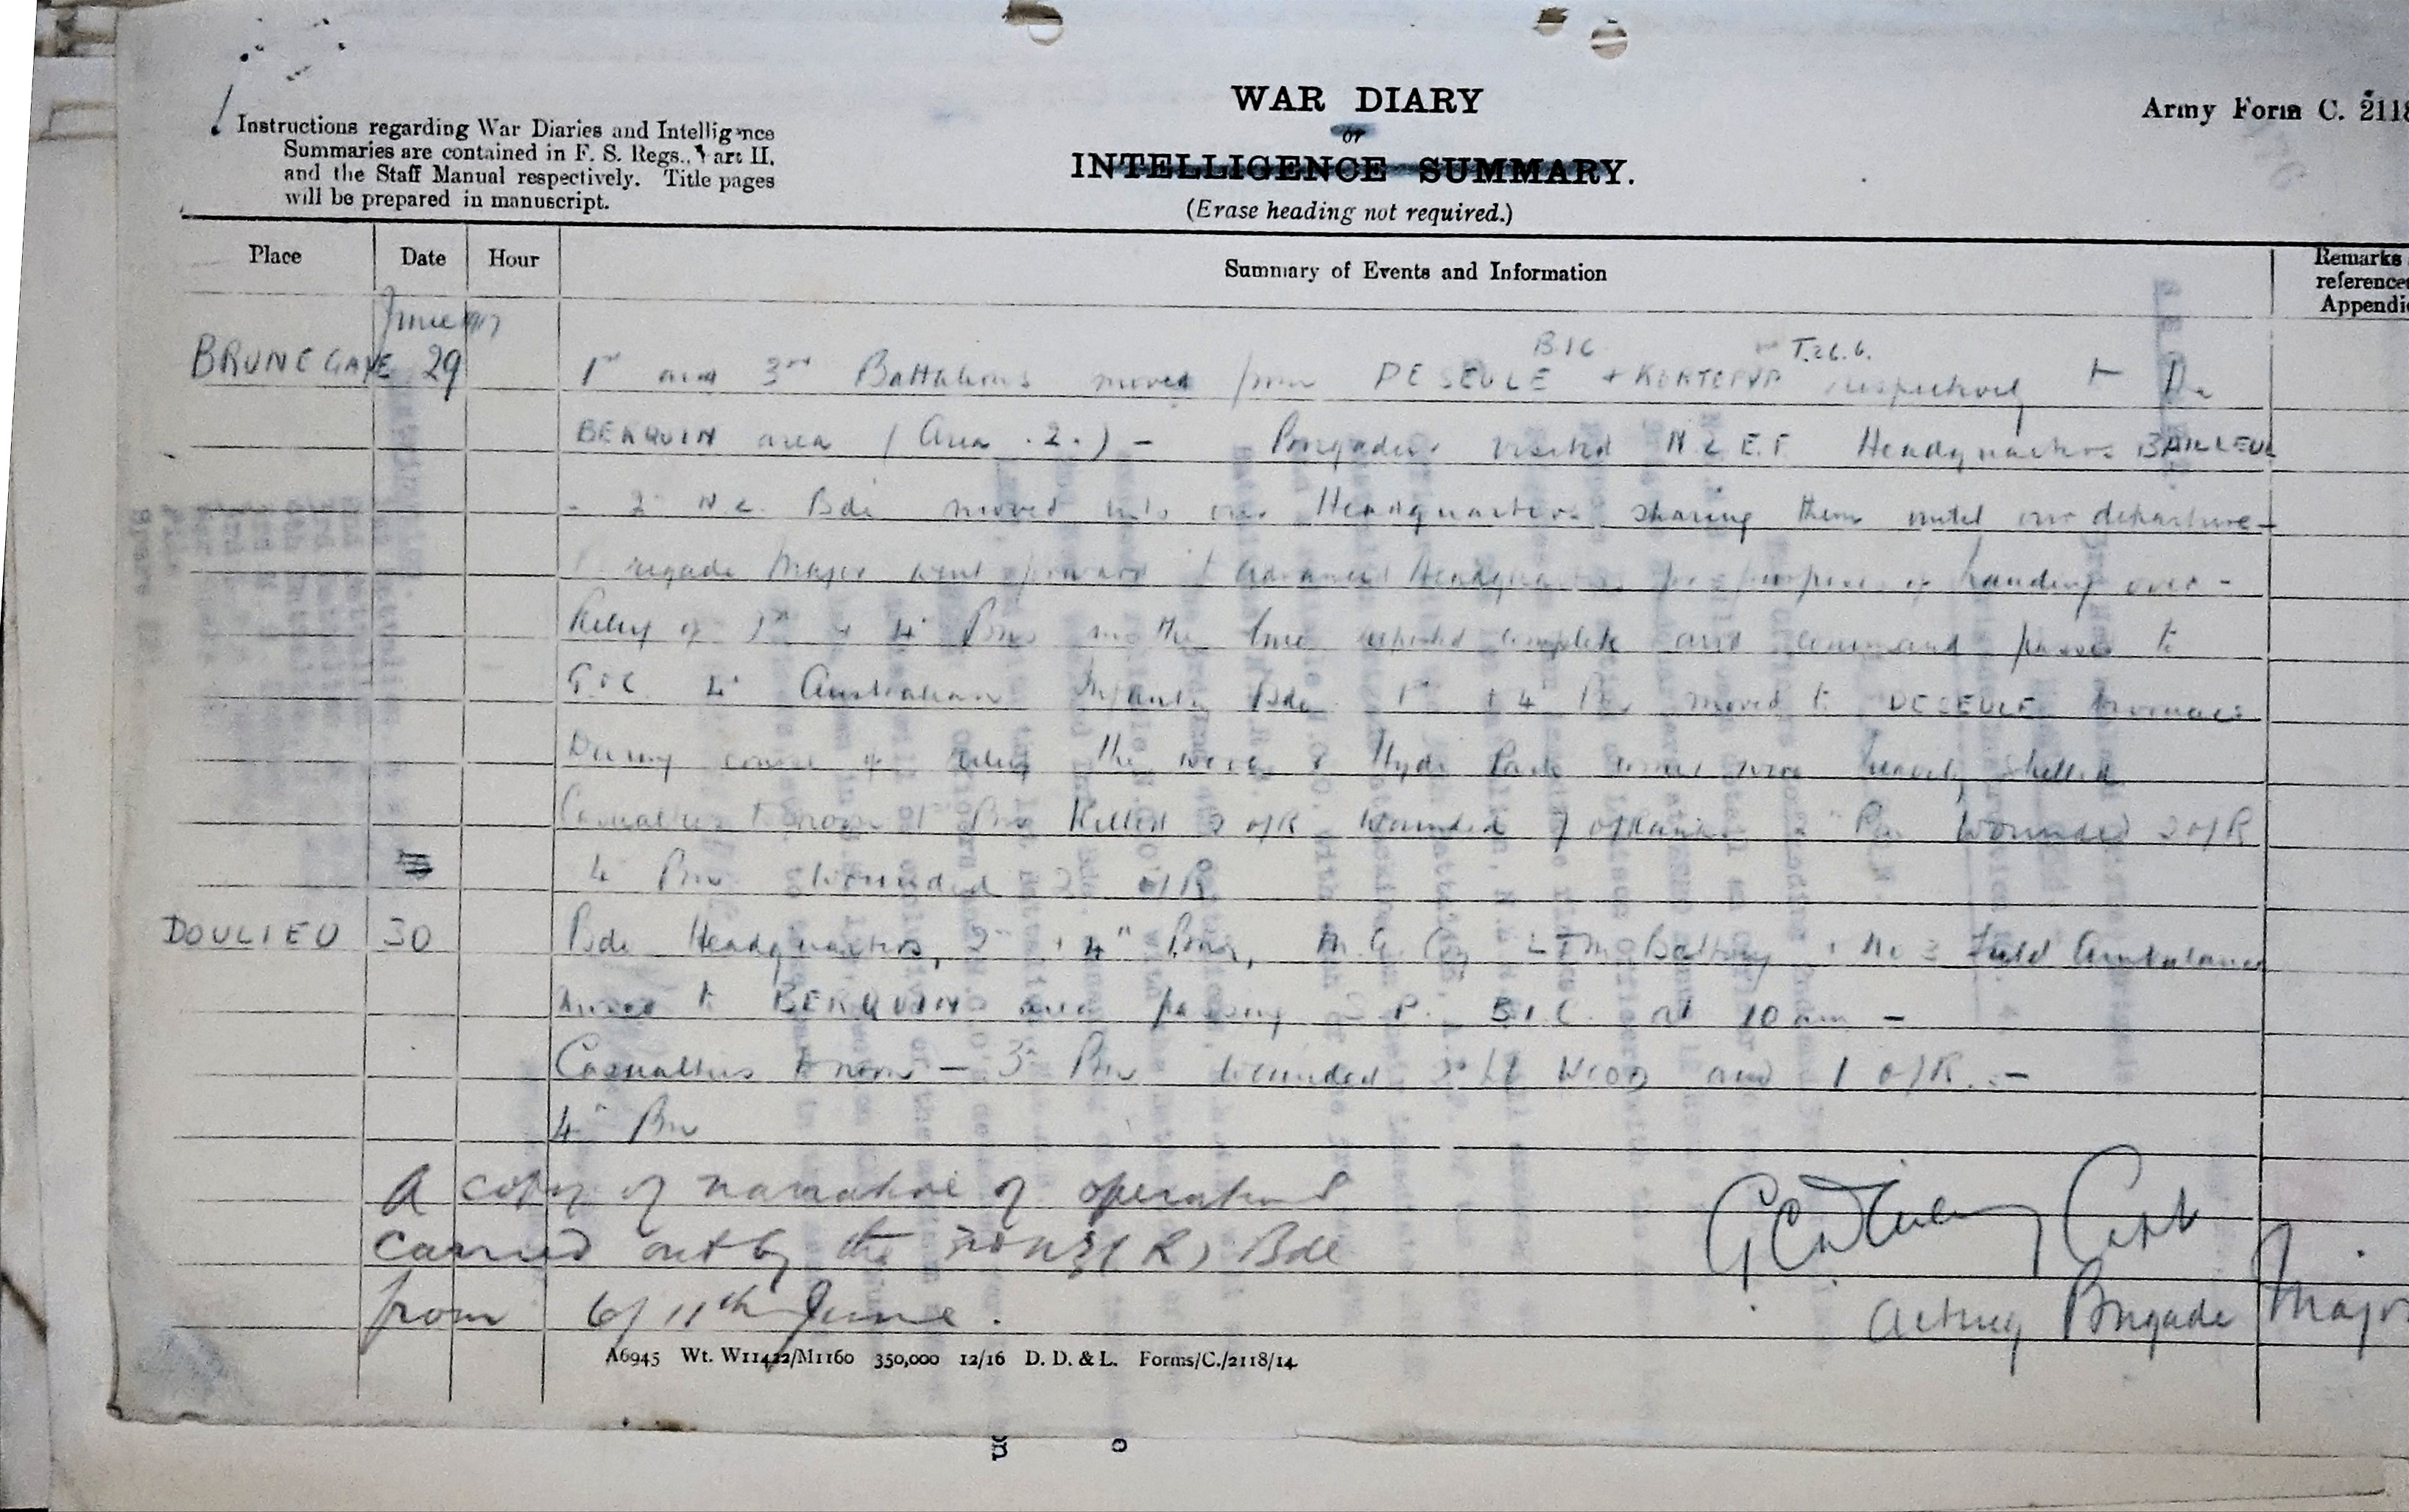 WAR DIARY
or
INTELLIGENCE SUMMARY.
(Erase heading not required.)
Army Form C. 2118
Instructions regarding War Diaries and Intelligence
Summaries are contained in F. S. Regs., Part II.
and the Staff Manual respectively. Title pages
will be prepared in manuscript.
Place Date Hour Summary of Events and Information Remarks
references
Appendi
June 1917
B.16 T.26.6.
BRUNEGAYE 29 1st and 3rd Battalions moved from DE SEULE + KORTEPYP respectively to
BERQUIN area (Area .2.) - Brigadier visited N.Z.E.F. Headquarters BAILLEUL
- 2 N.Z. Bde moved into our Headquarters sharing them until our departure -
Brigade Major went forward t advanced Headquarters for purposes of handing over -
Relief of + 4 Bns in the line reported complete and command passes to
G.O.C. 4 Australian Infantry Bde. + 4 Bn moved to DESEULE
During course of relief the & Hyde Park corner were heavily shelled
Casualties to noon Bn Killed O/R Wounded 7 Bn Wounded 2 O/R
4 Bn Wounded 2 O/R
DOULIEU 30 Bde Headquarters, 2 + 4th Bns, M.G. Coy LTM Battery + No 3 Field Ambulance
moved to BERQUIN area passing P. B.1.C. at 10 am -
Casualties to noon - 3 Bn Wounded 2/Lt WOOD and 1 O/R. -
4 Bn
A copy of narrative of operations
carried out by the 3rd NZ(R) Bde
from 6/11th June.
Capt
Acting Brigade Major
A6945 Wt. W11422/M1160 350,000 12/16 D. D. & L. Forms/C./2118/14.